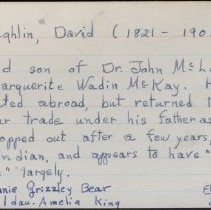 ghlin, David (1821 - 190
d son of Dr. John McL
arguerite Wadin McKay. H
ted abroad, but returned t
ur trade under his father as
opped out after a few years,
ndian, and appears to have "
" largely.
nie Grizzley Bear
1 dau. Amelia King